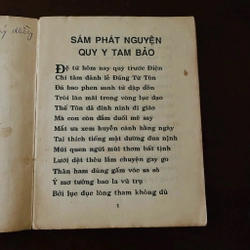 SÁM PHÁT NGUYỆN
QUY Y TAM BẢO
Đệ tử hôm nay quỳ trước Điện
Chí tâm đảnh lễ Đấng Từ Tôn
Đã bao phen sanh tử dập dồn
Trôi lăn mãi trong vòng lục đạo
Thế Tôn đã đinh ninh di giáo
Mà con còn đắm đuối mê say
Mắt ưa xem huyễn cảnh hằng ngày
Tai thích tiếng mật đường đưa nịnh
Mũi quen ngửi mùi thơm bất tịnh
Lưỡi dệt thêu lắm chuyện gay go
Thân ham dùng gấm vóc sa sô
Ý mơ tưởng bao la vũ trụ
Bởi lục dục lòng tham không đủ
1